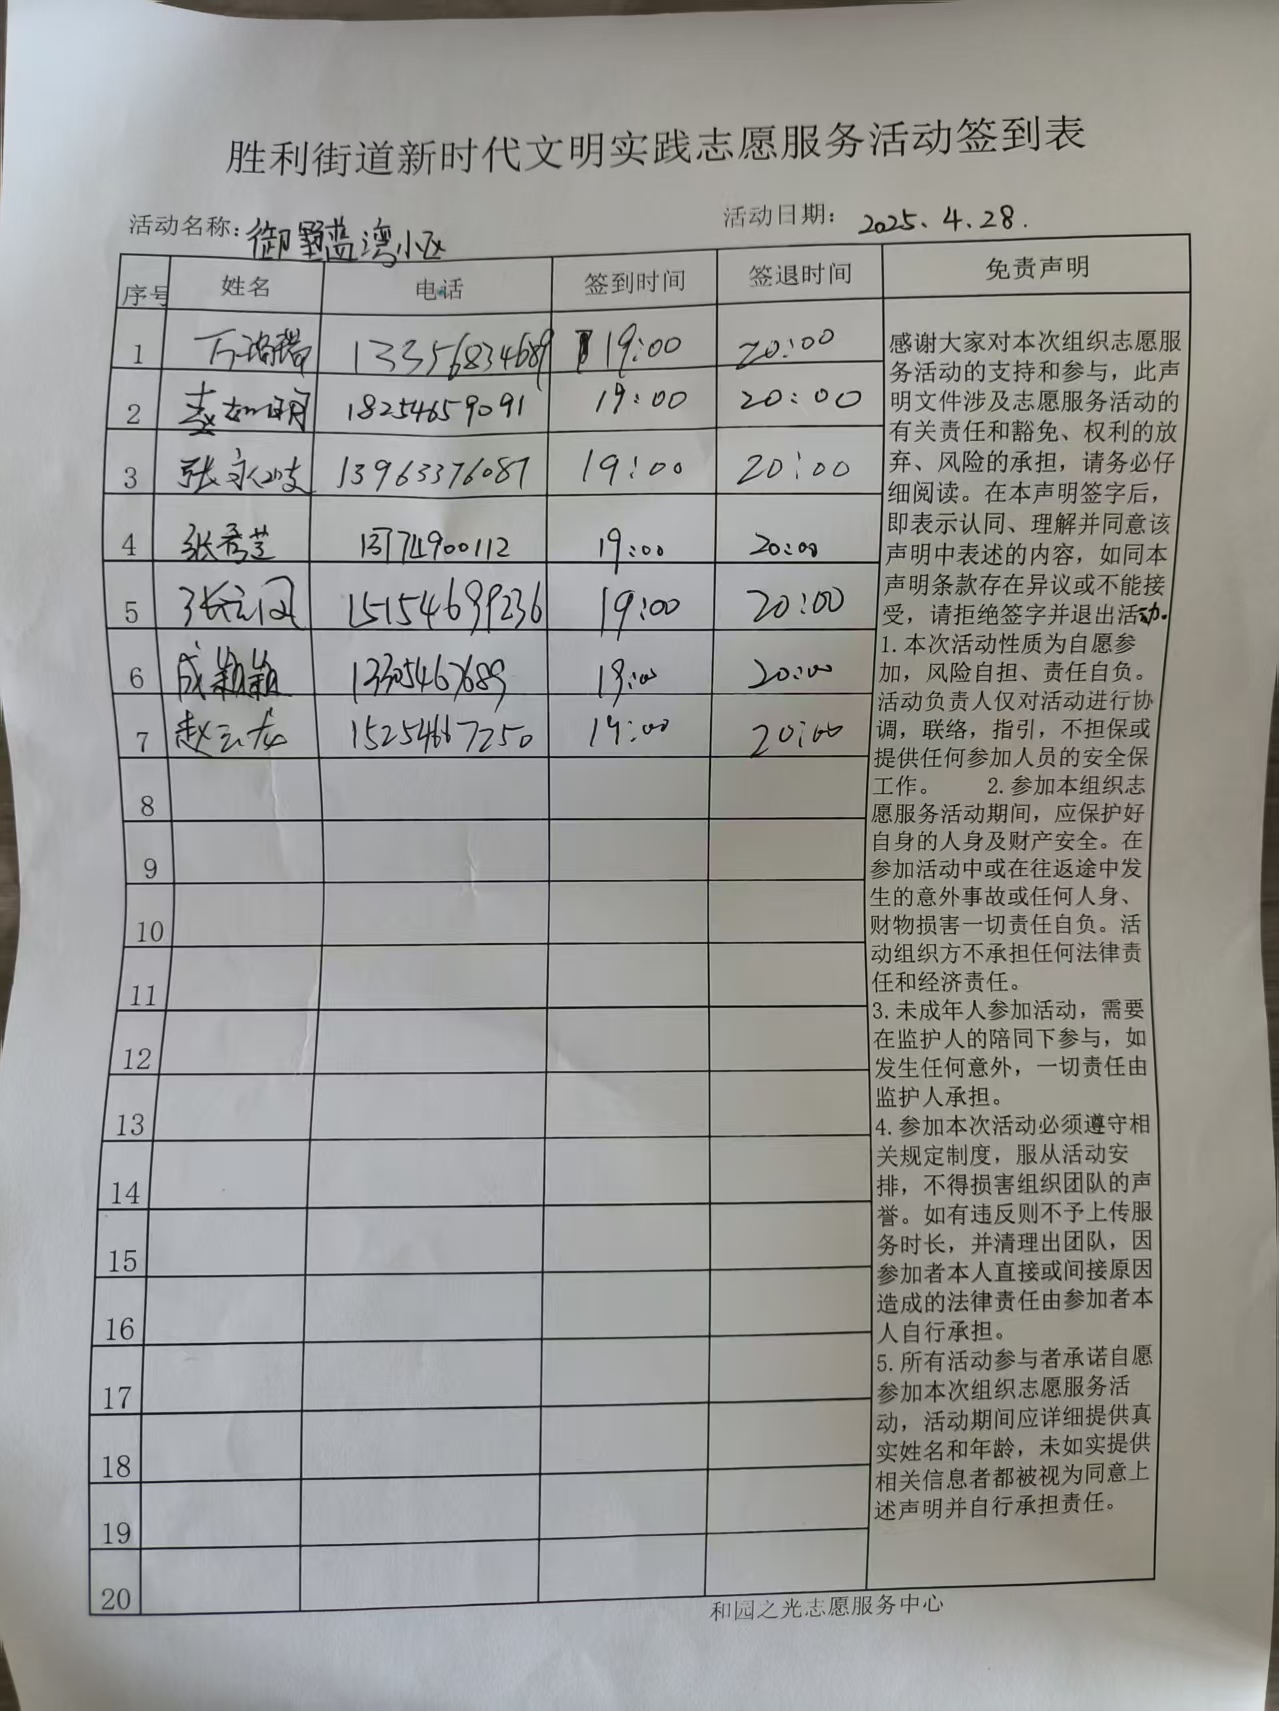 胜利街道新时代文明实践志愿服务活动签到表
活动名称：御墅蓝湾小区 活动日期：2025.4.28.
序号 姓名 电话 签到时间 签退时间 免责声明
1 13356834689 19:00 20:00
2 18254659091 19:00 20:00
3 13963376087 19:00 20:00
4 张秀芝 19:00 20:00
5 15154699236 19:00 20:00
6 成颖颖 13305467689 19:00 20:00
7 赵云龙 15254667250 19:00 20:00
8
9
10
11
12
13
14
15
16
17
18
19
20
感谢大家对本次组织志愿服
务活动的支持和参与，此声
明文件涉及志愿服务活动的
有关责任和豁免、权利的放
弃、风险的承担，请务必仔
细阅读。在本声明签字后，
即表示认同、理解并同意该
声明中表述的内容，如同本
声明条款存在异议或不能接
受，请拒绝签字并退出活动.
1.本次活动性质为自愿参
加，风险自担、责任自负。
活动负责人仅对活动进行协
调，联络，指引，不担保或
提供任何参加人员的安全保
工作。 2.参加本组织志
愿服务活动期间，应保护好
自身的人身及财产安全。在
参加活动中或在往返途中发
生的意外事故或任何人身、
财物损害一切责任自负。活
动组织方不承担任何法律责
任和经济责任。
3.未成年人参加活动，需要
在监护人的陪同下参与，如
发生任何意外，一切责任由
监护人承担。
4.参加本次活动必须遵守相
关规定制度，服从活动安
排，不得损害组织团队的声
誉。如有违反则不予上传服
务时长，并清理出团队，因
参加者本人直接或间接原因
造成的法律责任由参加者本
人自行承担。
5.所有活动参与者承诺自愿
参加本次组织志愿服务活
动，活动期间应详细提供真
实姓名和年龄，未如实提供
相关信息者都被视为同意上
述声明并自行承担责任。
和园之光志愿服务中心